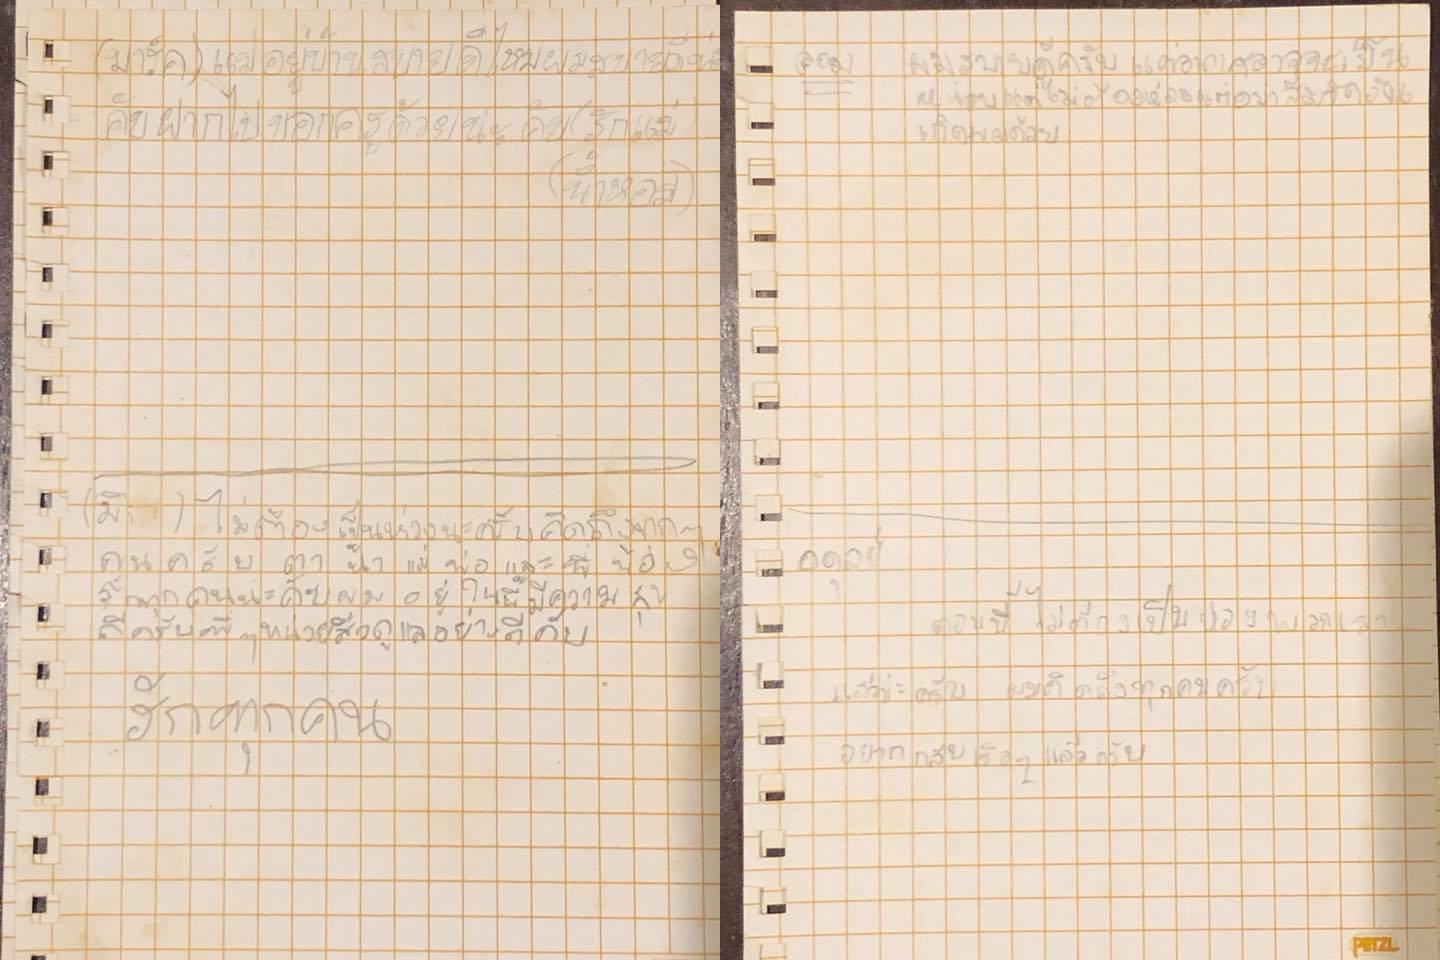 (มาร์ค) แม่อยู่บ้านสบายดีไหมผมสบายดี
คับฝากไปบอกครูด้วยนะคับ(รักแม่)
(น้ำหอม)
(มิ ) ไม่ต้องเป็นห่วงนะครับคิดถึงทุกๆ
คนครับ ตา น้า แม่ พ่อ และ พี่ น้อง
รักทุกคนนะคับผม อยู่ ในนี้มีความสุข
ดีครับพี่ๆหน่วยซีลดูแลอย่างดีคับ
รักทุกคน
ดอม
ผมสบายดีครับ แต่อากาศอาจจะเย็น
หน่อยแต่ไม่ต้องห่วงแต่อย่าลืมจัดวัน
เกิดผมด้วย
อดุลย์
ตอนนี้ไม่ต้องเป็นห่วงพวกเรา
แล้วนะครับ ผมคิดถึงทุกคนครับ
อยากกลับเร็วๆแล้วครับ
PETZL